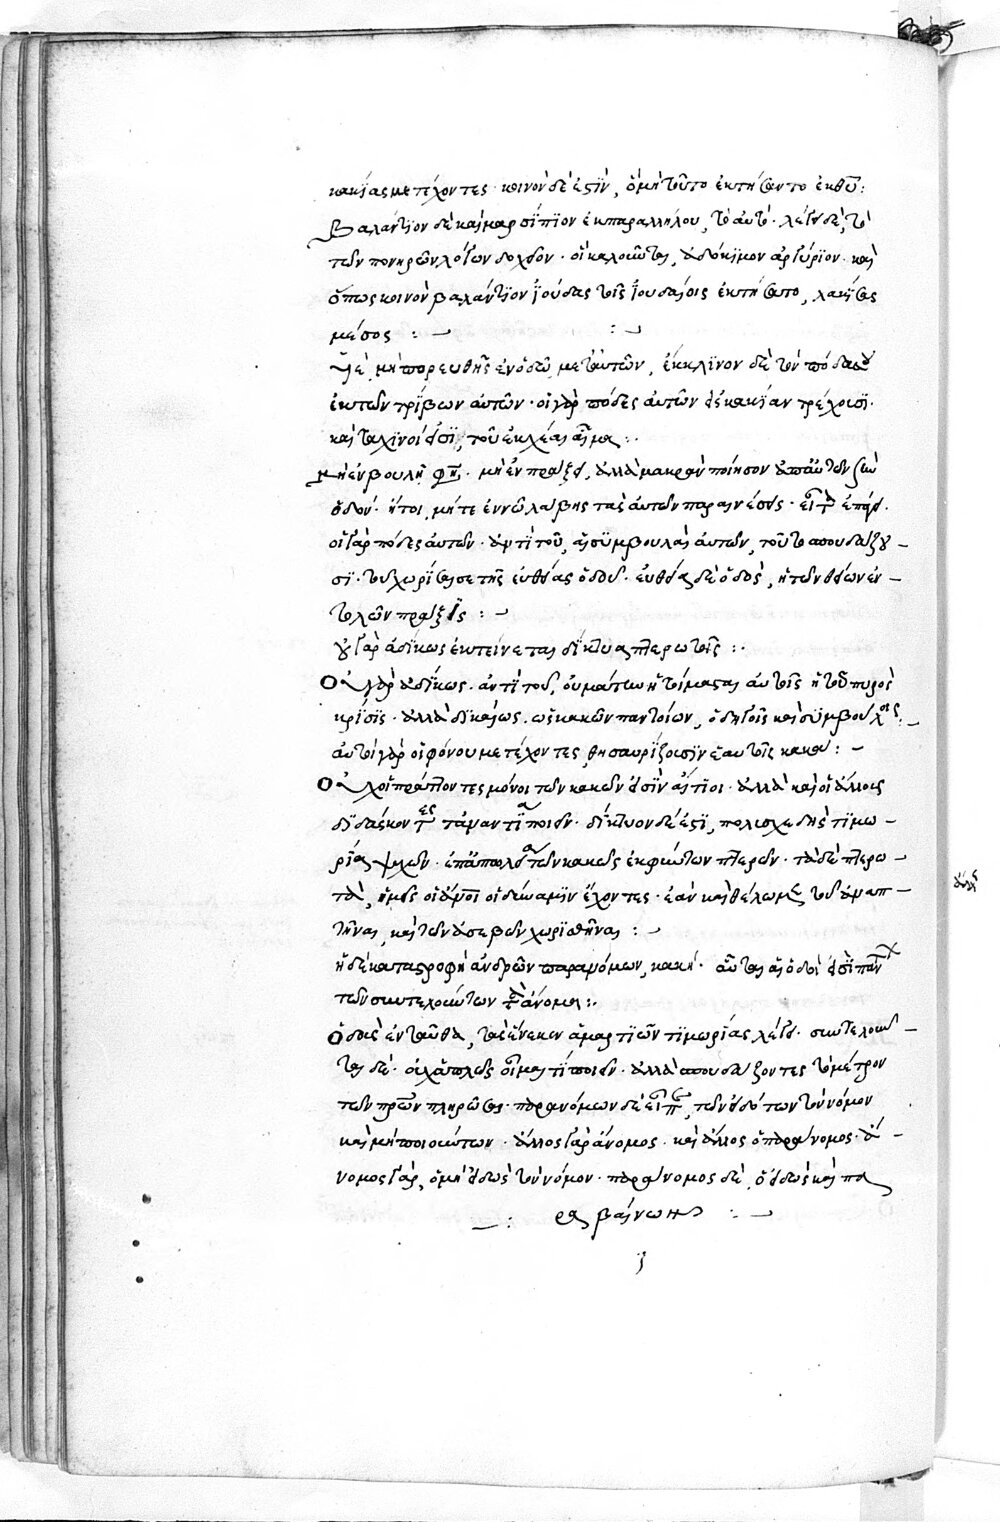 κακίας μετέχοντες· κοινὸν δέ ἐστιν, ὃ μὴ τοῦτο ἐκτήσαντο ἐκ θεοῦ:
Βαλάντιον δὲ καὶ μαρσίπιον ἐκ παραλλήλου, τὸ αὐτό· λέγει δὲ, τὸ
τῶν πονηρῶν λόγων δοχεῖον· οἱ καλοῦνται, ἀδόκιμον ἀργύριον· καὶ
ὅπως κοινὸν βαλάντιον ἰούδας τοῖς ἰουδαίοις ἐκτήσατο, λακήσας
μέσος :
Υἱέ, μὴ πορευθῇς ἐν ὁδῷ μετ' αὐτῶν, ἔκκλινον δὲ τὸν πόδα σου
ἐκ τῶν τρίβων αὐτῶν· οἱ γὰρ πόδες αὐτῶν εἰς κακίαν τρέχουσι·
καὶ ταχινοί εἰσι, τοῦ ἐκχέαι αἷμα:
Μὴ ἐν βουλῇ φησὶ· μὴ ἐν πράξει, ἀλλὰ μακρὰν ποίησον ἀπ' αὐτῶν τὴν
ὁδόν· ἤτοι, μήτε ἐν νῷ λάβῃς τὰς αὐτῶν παραινέσεις· εἶτα ἐπάγει·
οἱ γὰρ πόδες αὐτῶν· ἀντὶ τοῦ, αἱ συμβουλαὶ αὐτῶν, τοῦτο σπουδάζου-
σι· τὸ χωρίσαι σε τῆς εὐθείας ὁδοῦ· εὐθεῖα δὲ ὁδὸς, ἡ τῶν θείων ἐν-
τολῶν πρᾶξις :
οὐ γὰρ ἀδίκως ἐκτείνεται δίκτυα πτερωτοῖς :
Οὐ γὰρ ἀδίκως· ἀντὶ τοῦ, οὐ μάτην ἡτοίμασται αὐτοῖς ἡ τοῦ πυρὸς
κρίσις· ἀλλὰ δικαίως· ὡς κακῶν παντοίων, ὁδηγοῖς καὶ συμβούλοις:
αὐτοὶ γὰρ οἱ φόνου μετέχοντες, θησαυρίζουσιν ἑαυτοῖς κακά :
Οὐχ οἱ πράττοντες μόνοι τῶν κακῶν εἰσὶν αἴτιοι· ἀλλὰ καὶ οἱ ἄλλους
διδάσκοντες τἀναντία ποιεῖν· δίκτυον δέ ἐστι, πολυσχεδὴς τιμω-
ρία ψυχῶν· ἐπάπολο τῶν κακῶς ἐκφυόντων πτερῶν· τὰ δὲ πτερω-
τὰ, ἡμεῖς οἱ ἄνθρωποι οἱ δύναμιν ἔχοντες· ἐὰν καὶ θέλωμεν τοῦ ἀναπ-
τῆναι, καὶ τῶν ἀσεβῶν χωρισθῆναι :
ἡ δὲ καταστροφὴ ἀνδρῶν παρανόμων, κακή· αὗται αἱ ὁδοί εἰσι πάντων
τῶν συντελούντων τὰ ἄνομα:
Ὁδοὺς ἐνταῦθα, τὰς ἕνεκεν ἁμαρτιῶν τιμωρίας λέγει· συντελοῦν-
ται δέ· οὐχ ἁπλῶς οἷμαι τί ποιεῖν· ἀλλὰ σπουδάζοντες τὸ μέτρον
τῶν πατέρων πληρῶσαι· παρανόμων δὲ εἶπε, τῶν εἰδότων τὸν νόμον
καὶ μὴ ποιούντων· ἄλλος γὰρ ἄνομος· καὶ ἄλλος ὁ παράνομος· ἄ-
νομος γὰρ, ὁ μὴ εἰδὼς τὸν νόμον· παράνομος δὲ, ὁ εἰδὼς καὶ πα
ραβαίνων :